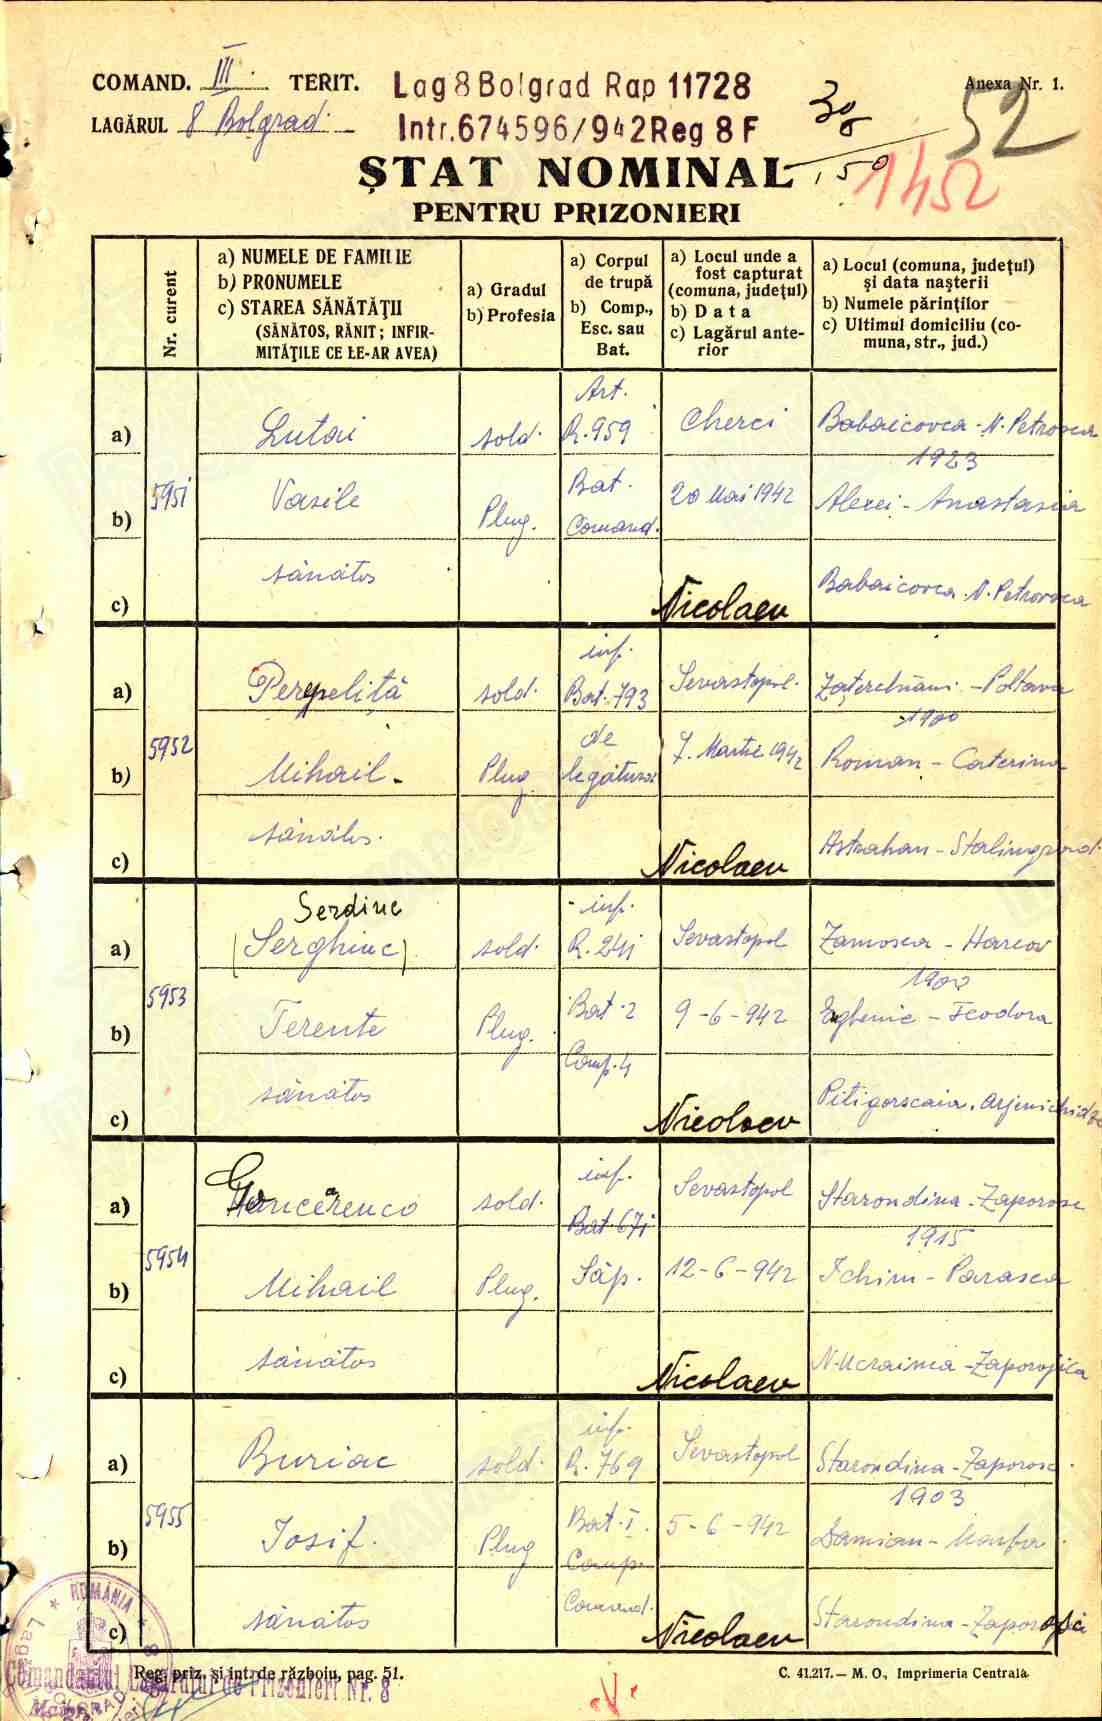 COMAND. III. TERIT.
LAGĂRUL 8 Bolgrad.
Lag 8 Bolgrad Rap 11728
Intr. 674596/942 Reg 8 F
Anexa Nr. 1.
52
1452
ȘTAT NOMINAL
PENTRU PRIZONIERI
Nr. curent
a) NUMELE DE FAMILIE
b) PRONUMELE
c) STAREA SĂNĂTĂŢII
(SĂNĂTOS, RĂNIT; INFIR-
MITĂŢILE CE LE-AR AVEA)
a) Gradul
b) Profesia
a) Corpul
de trupă
b) Comp.,
Esc. sau
Bat.
a) Locul unde a
fost capturat
(comuna, județul)
b) Data
c) Lagărul ante-
rior
a) Locul (comuna, județul)
și data nașterii
b) Numele părinților
c) Ultimul domiciliu (co-
muna, str., jud.)
5951
a) Lutai sold. Art. R. 959 Cherci Babaicovca - N. Petrovca
1923
b) Vasile Plug. Bat. Comand. 20 Mai 1942 Alexei - Anastasia
c) sănătos Nicolaev Babaicovca. N. Petrovca
5952
a) Perepeliță sold. inf. Bat. 793 Sevastopol. - Poltava
1900
b) Mihail - Plug de legătură 7. Martie 1942 Roman - Caterina
c) sănătos. Nicolaev Astrahan - Stalingrad.
5953
Serdiuc
a) (Serghiuc) sold. inf. R. 241 Sevastopol Zamosca - Harcov
1900
b) Terente Plug. Bat. 2 Comp. 4 9-6-942 Eghenie - Feodora
c) sănătos Nicolaev Pitigorscaia.
5954
a) Goncarenco sold. inf. Bat. 671 Sevastopol Starondina - Zaporosc
1915
b) Mihail Plug. Săp. 12-6-942 Ichim - Parasca
c) sănătos Nicolaev N-Ucrainca - Zaporojica
5955
a) Buriac sold. inf. R. 769 Sevastopol Starondina - Zaporosc.
1903
b) Iosif. Plug Bat. I. Comp. Comand. 5-6-942 Damian - Marfa.
c) sănătos Nicolaev Starondina - Zaporojsci
ROMÂNIA
Comandantul Lagărului de Prizonieri Nr. 8
Reg. priz. și int. de războiu, pag. 51.
C. 41.217. — M. O., Imprimeria Centrală